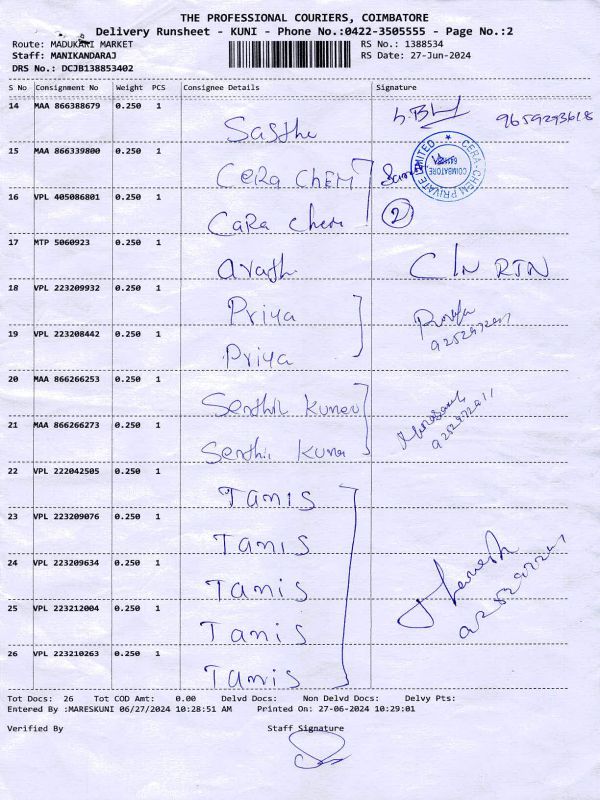 THE PROFESSIONAL COURIERS, COIMBATORE
Delivery Runsheet - KUNI - Phone No.:0422-3505555 - Page No.:2
Route: MADUKARI MARKET RS No.: 1388534
Staff: MANIKANDARAJ RS Date: 27-Jun-2024
DRS No.: DCJB138853402
S No Consignment No Weight PCS Consignee Details Signature
14 MAA 866388679 0.250 1 Sasthi 9659293618
15 MAA 866339800 0.250 1 CeRa CHEM
CERA CHEM PRIVATE LIMITED COIMBATORE
16 VPL 405086801 0.250 1 CaRa Chem 2
17 MTP 5060923 0.250 1 C/N RTN
18 VPL 223209932 0.250 1 Priya
19 VPL 223208442 0.250 1 Priya
20 MAA 866266253 0.250 1 Senthil
21 MAA 866266273 0.250 1 Senthil
22 VPL 222042505 0.250 1 TANIS
23 VPL 223209076 0.250 1 TANIS
24 VPL 223209634 0.250 1 TANIS
25 VPL 223212004 0.250 1 TANIS
26 VPL 223210263 0.250 1 TANIS
Tot Docs: 26 Tot COD Amt: 0.00 Delvd Docs: Non Delvd Docs: Delvy Pts:
Entered By :MARESKUNI 06/27/2024 10:28:51 AM Printed On: 27-06-2024 10:29:01
Verified By Staff Signature